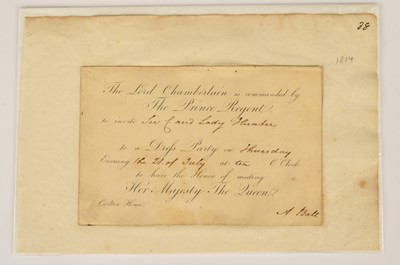 38
1814
The Lord Chamberlain is commanded by
The Prince Regent
to invite Sir C and Lady Hunter
to a Dress Party on Thursday
Evening the 21 of July at ten O'Clock
to have the Honor of meeting
Her Majesty The Queen.
Carlton House
A Ball